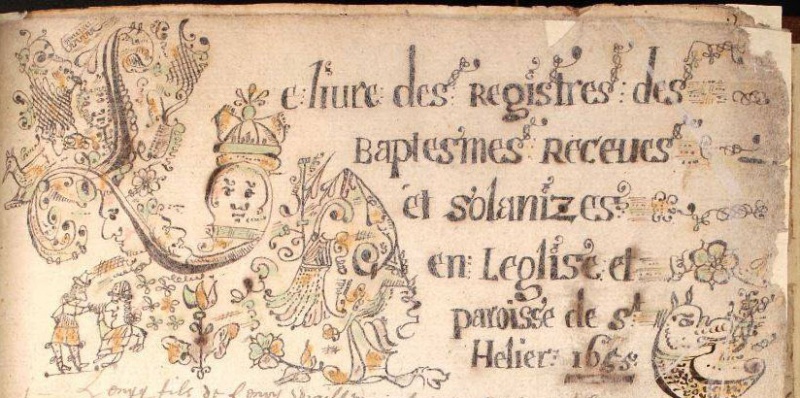 Le liure des Registres des
Baptesmes Receues
et solanizes
en Leglise et
paroisse de st
Helier
fils de